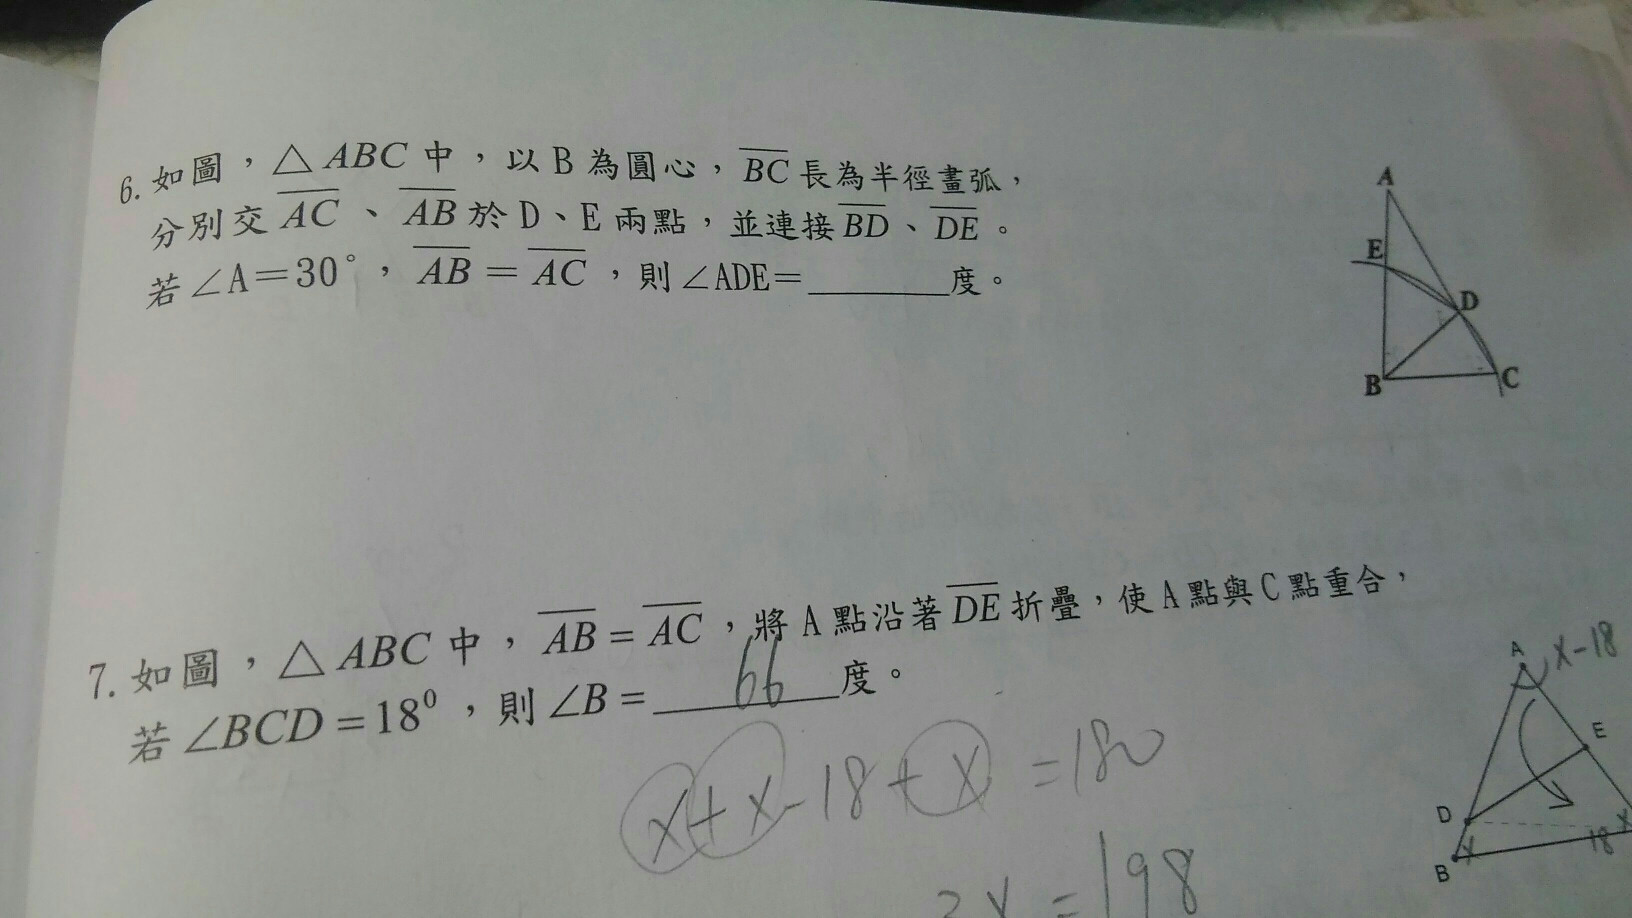 6. 如圖，△ABC 中，以 B 為圓心，BC 長為半徑畫弧，
分別交 AC 、 AB 於 D、E 兩點，並連接 BD、DE 。
若 ∠A＝30°，AB = AC ，則 ∠ADE＝______度。
A
E
D
B
C
7. 如圖，△ABC 中，AB = AC ，將 A 點沿著 DE 折疊，使 A 點與 C 點重合，
若 ∠BCD = 18⁰ ，則 ∠B = 66 度。
x+x-18+x =180
3x =198
A
x-18
E
D
x
18
x
B